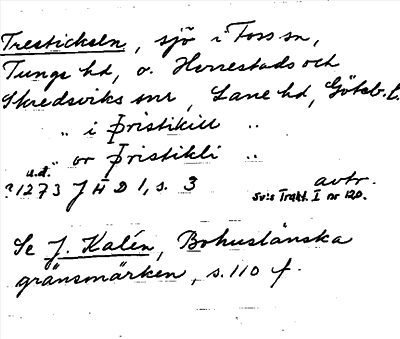 Tresticklen, sjö i Foss sn,
Tunge hd, o. Herrestads och
Skredsviks snr, Lane hd, Götab. l.
" i Þristikill ..
" or Þristikli ..
u.d.
?1273 JHD 1, s. 3 avtr.
Sv:s Trakt. I nr 120.
Se J. Kalén, Bohuslänska
gränsmärken, s. 110 f.